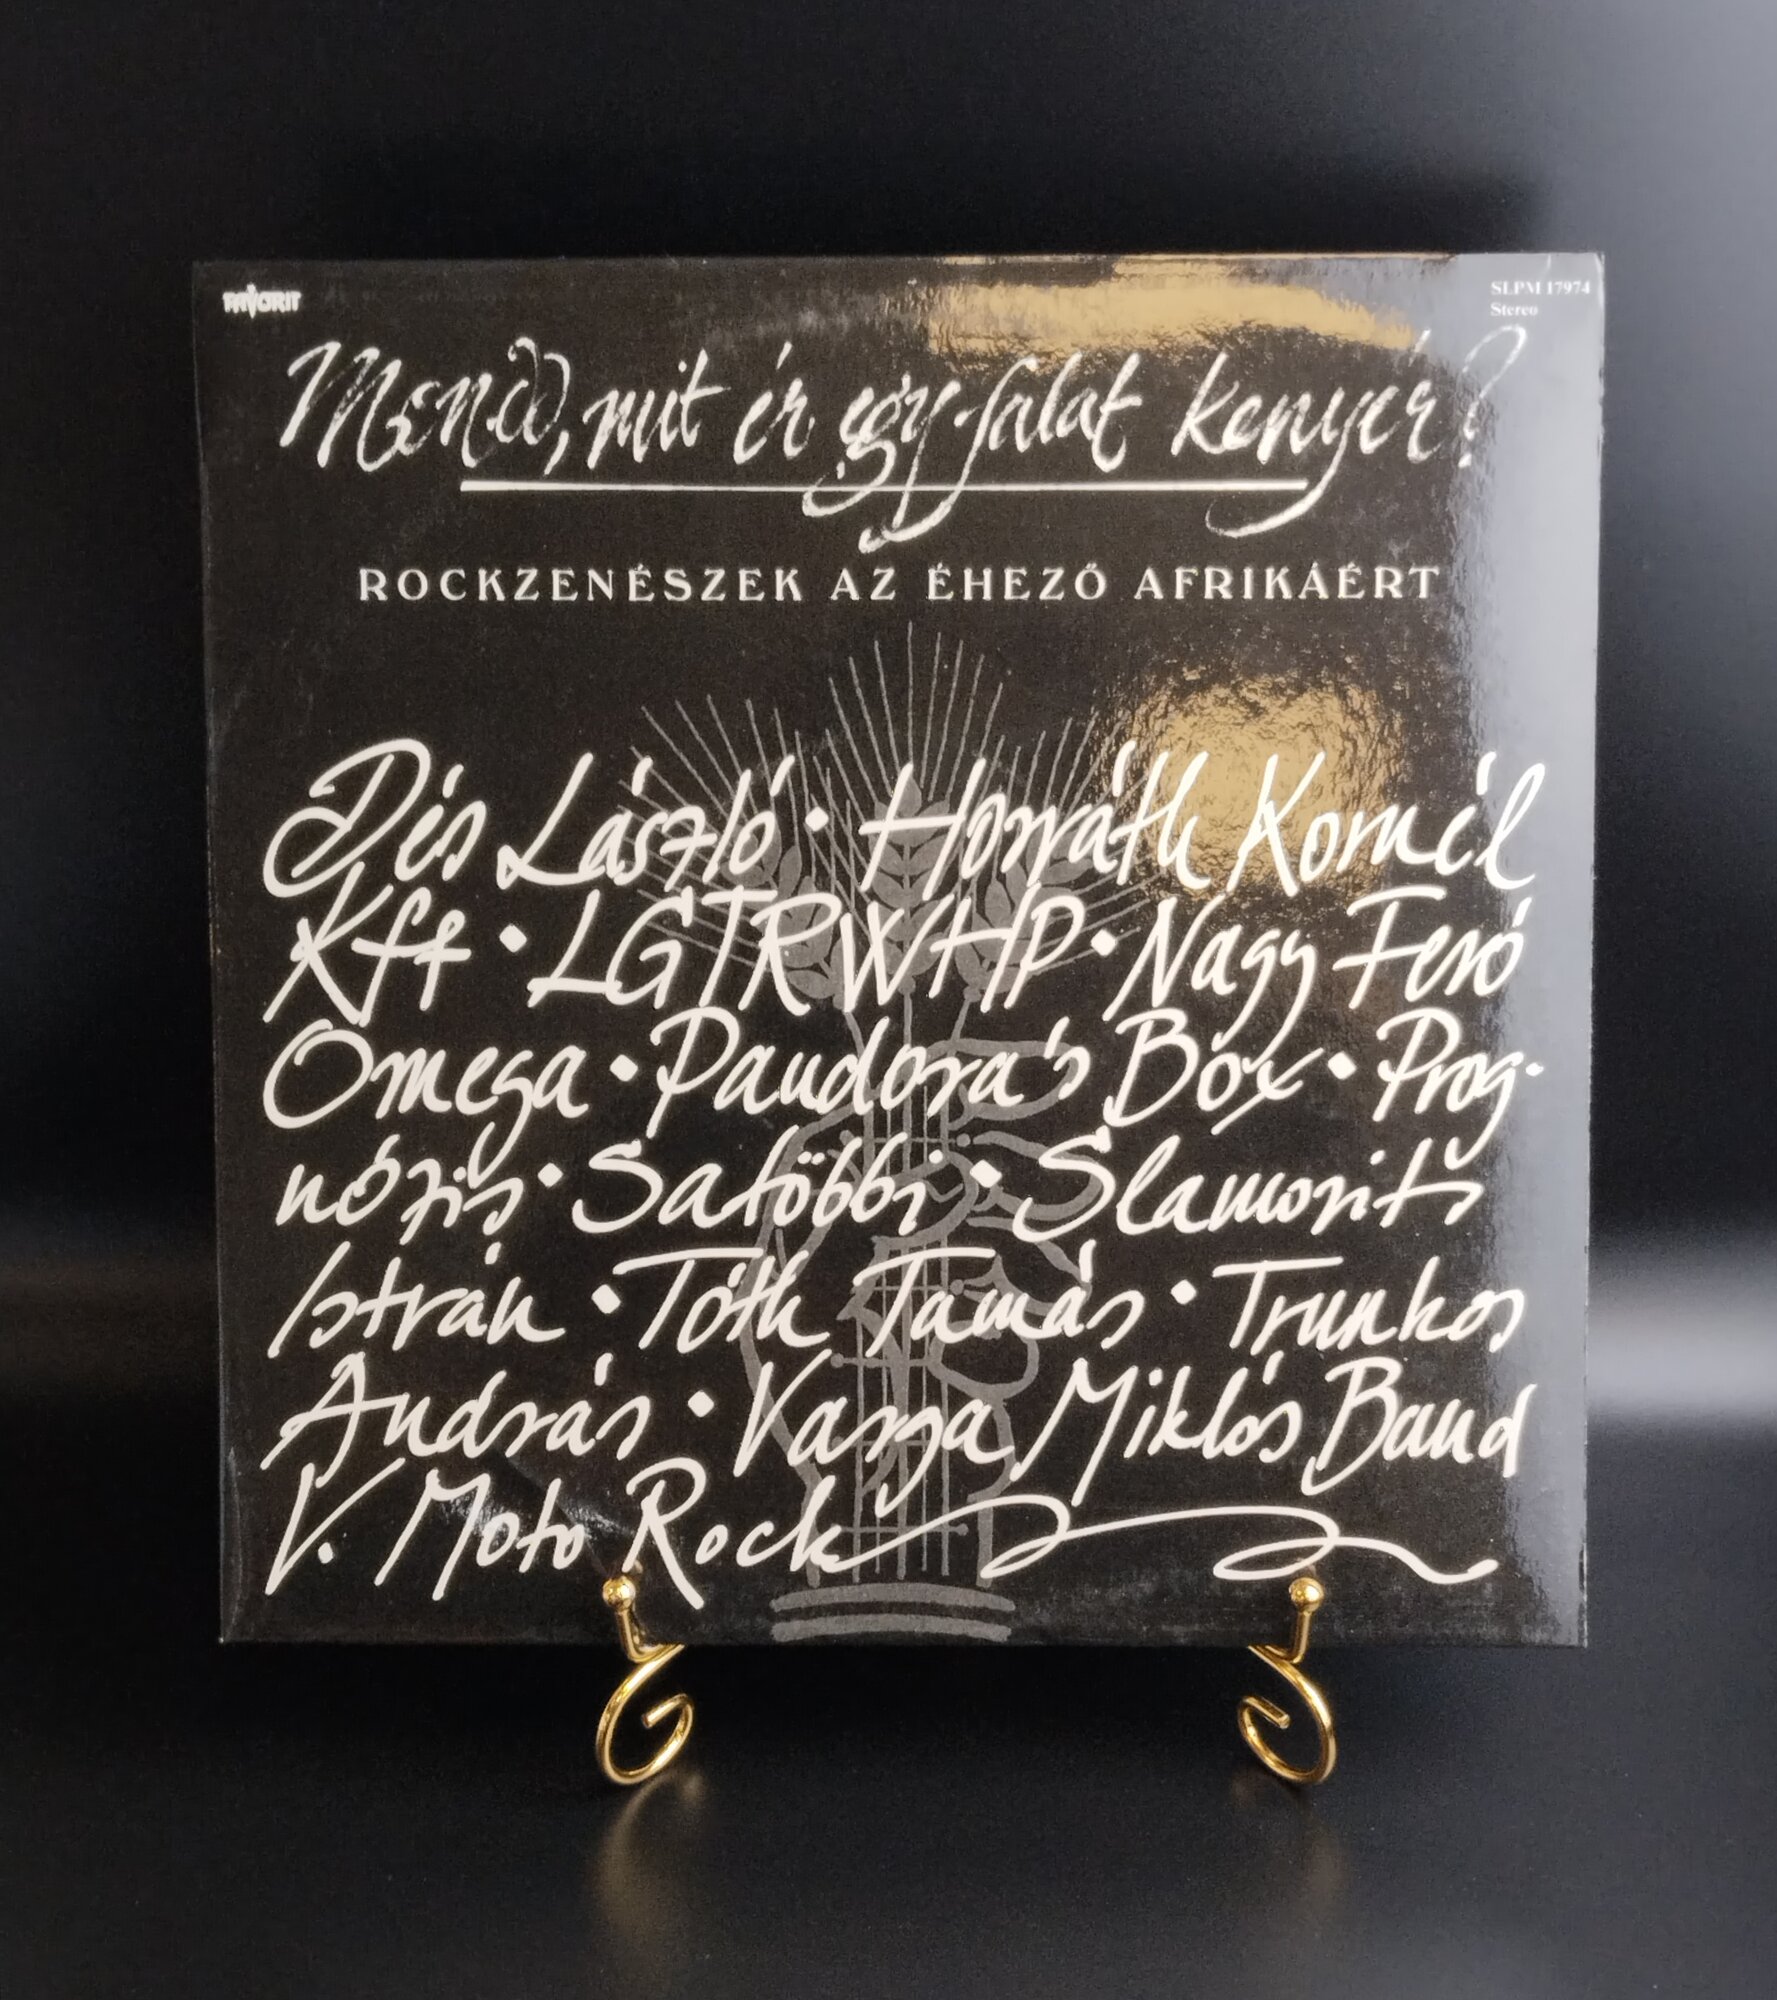 FAVORIT
SLPM 17974
Stereo
Mondd, mit ér egy falat kenyér?
ROCKZENÉSZEK AZ ÉHEZŐ AFRIKÁÉRT
Dés László • Horváth Kornél
Kft • LGTRWHP • Nagy Feró
Omega • Pandora's Box • Prog-
nózis • Satöbbi • Slamovits
István • Tóth Tamás • Trunkos
András • Varga Miklós Band
V. Moto Rock